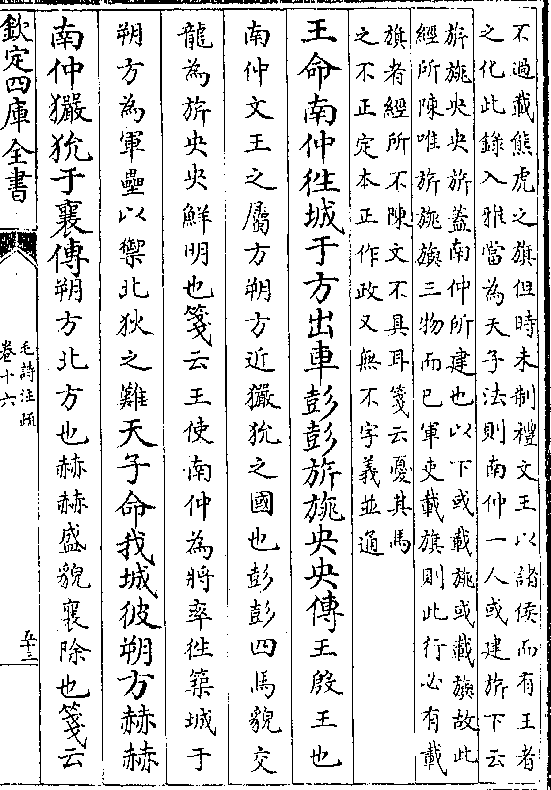 不過載熊虎之旗但時未制禮文王以諸侯而有王者
之化此錄入雅當為天子法則南仲一人或建旂下云
旂旐央央旂蓋南仲所建也以下或載旐或載旟故此
經所陳唯旂旐旟三物而已軍吏載旗則此行必有載
旗者經所不陳文不具耳箋云憂其馬
之不正定本正作政又無不字義並通
王命南仲往城于方出車彭彭旂旐央央傳王殷王也
南仲文王之屬方朔方近玁狁之國也彭彭四馬貌交
龍為旂央央鮮明也箋云王使南仲為將率往築城于
朔方為軍壘以禦北狄之難天子命我城彼朔方赫赫
南仲玁狁于襄傳朔方北方也赫赫盛貌襄除也箋云
欽定四庫全書
毛詩注疏
卷十六
五十二